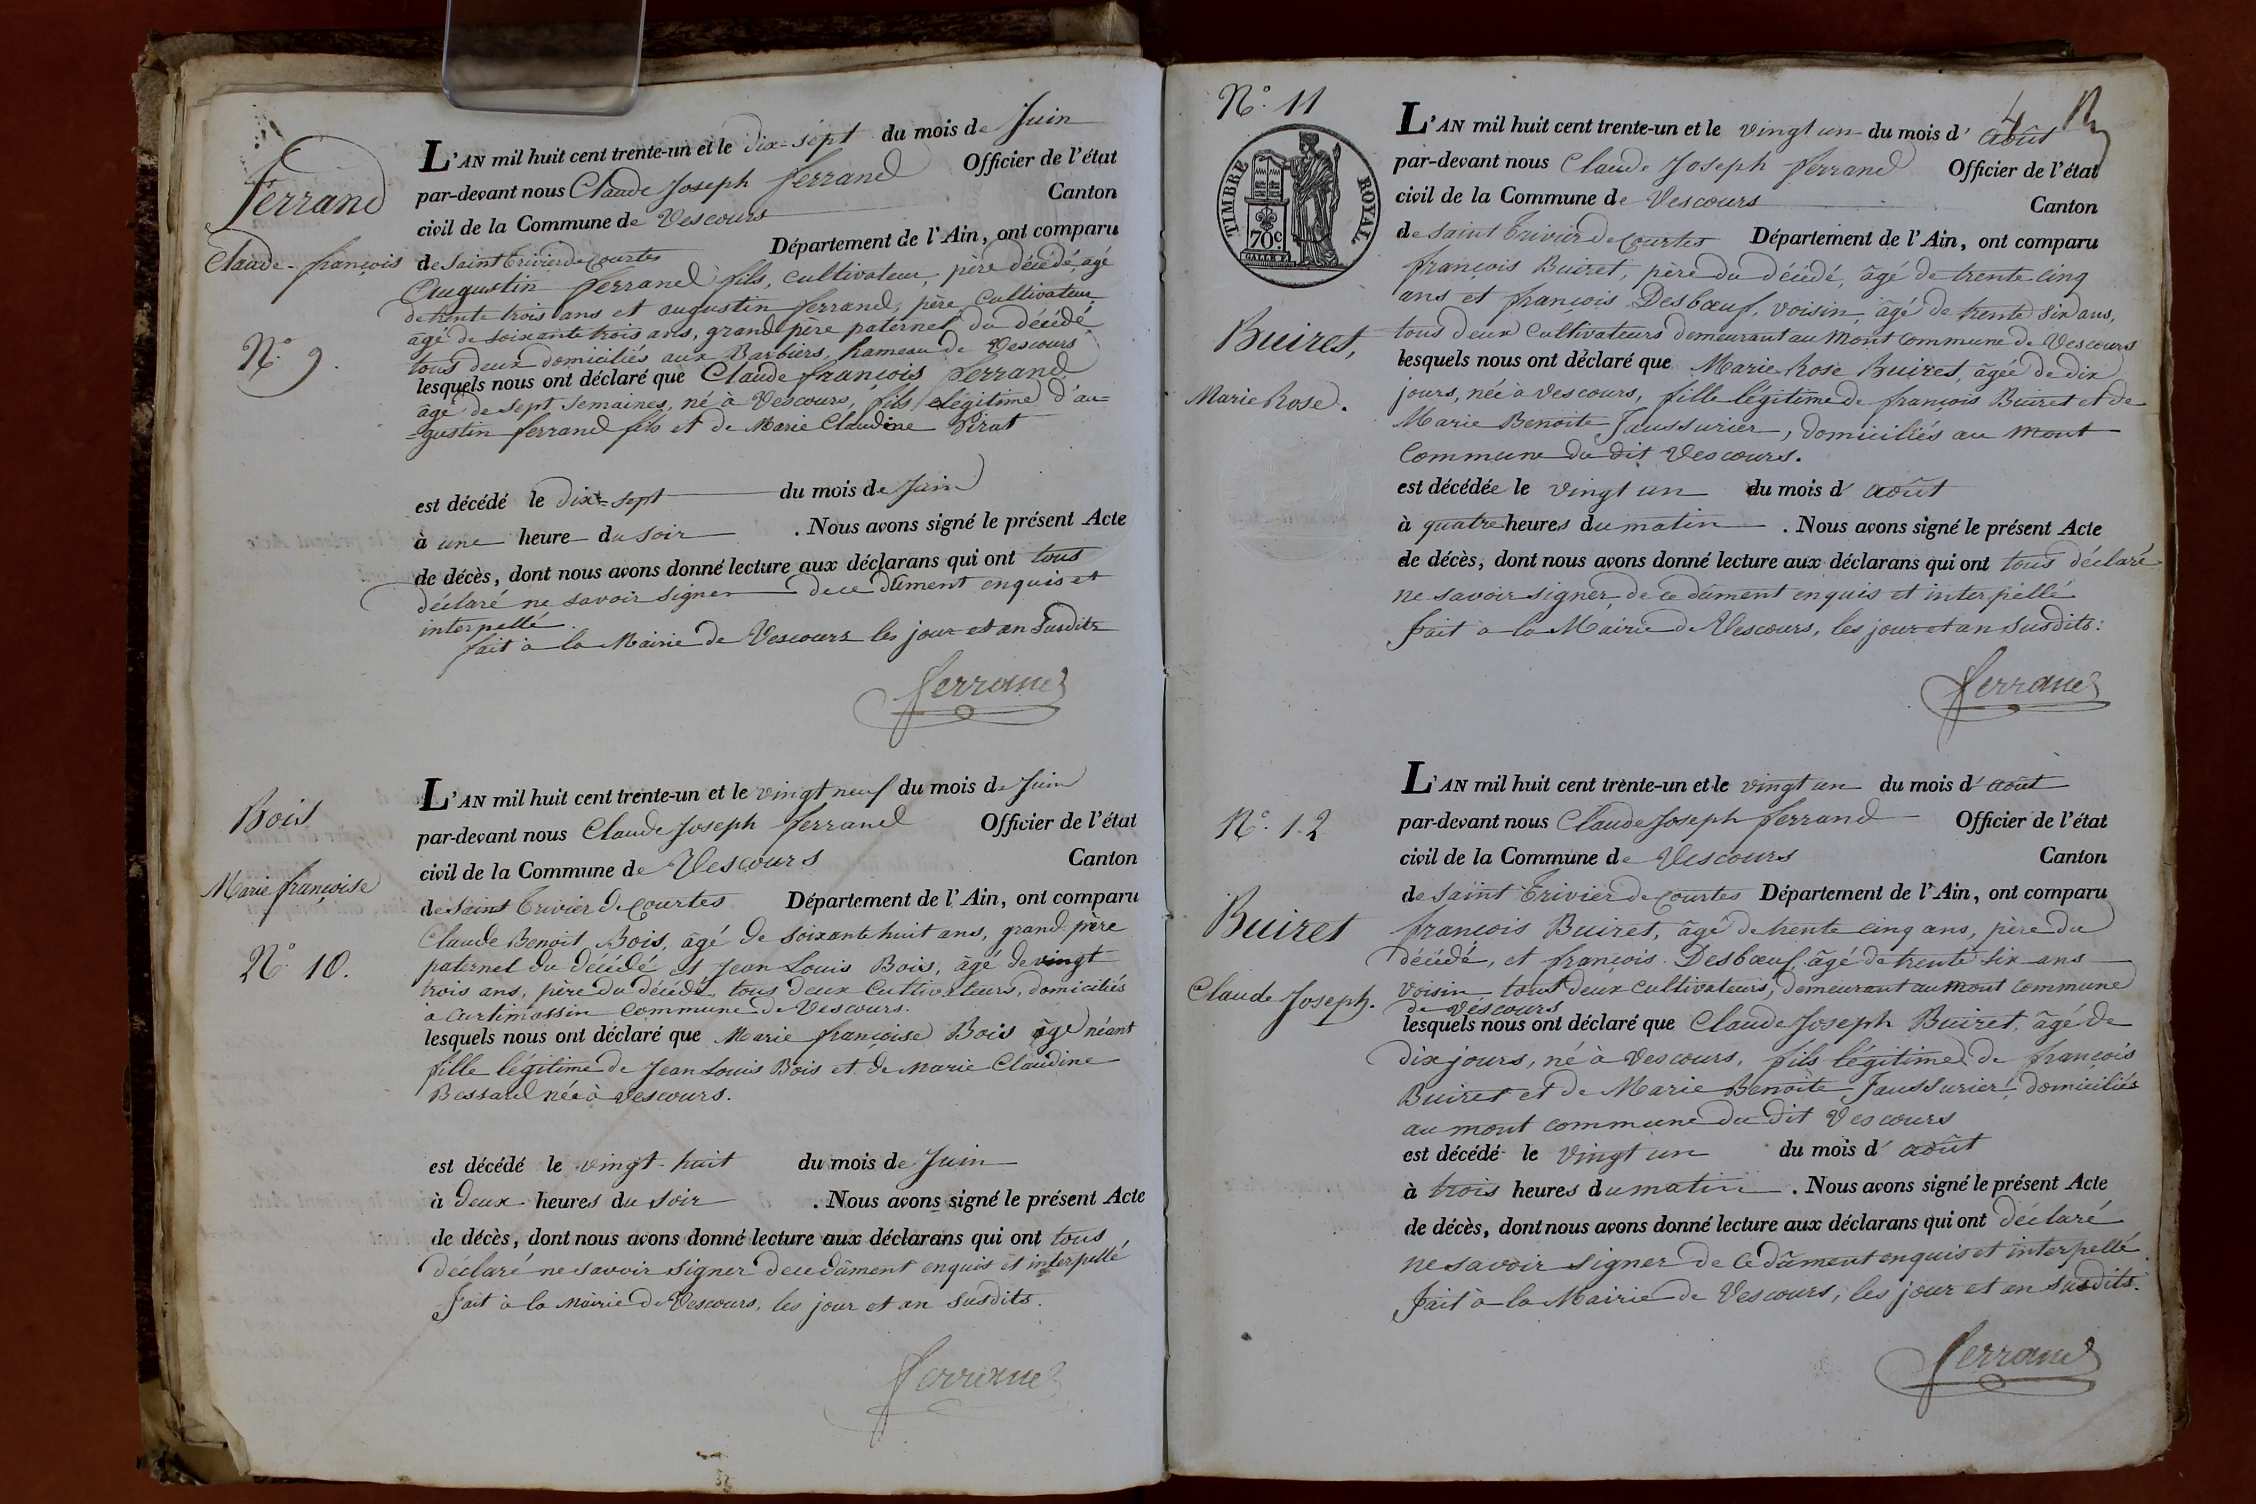 Ferrand
Claude-françois
N.° 9.
L'AN mil huit cent trente-un et le dix-sept du mois de Juin
par-devant nous Claude Joseph Ferrand Officier de l'état
civil de la Commune de Vescours Canton
de Saint Trivier de Courtes Département de l'Ain, ont comparu
Augustin Ferrand fils, cultivateur, père décédé, âgé
de trente trois ans et augustin ferrand, père, Cultivateur
âgé de soixante trois ans, grand père paternel du décédé
tous deux domiciliés aux Barbiers, hameau de Vescours
lesquels nous ont déclaré que Claude françois Ferrand
âgé de sept semaines, né à Vescours, fils légitime d'au=
=gustin ferrand fils et de Marie Claudine Pirat
est décédé le dix-sept du mois de Juin
à une heure du soir . Nous avons signé le présent Acte
de décès, dont nous avons donné lecture aux déclarans qui ont tous
déclaré ne savoir signer de ce dûment enquis et
interpellé.
fait à la Mairie de Vescours les jour et an susdits
Ferrand
Bois
Marie françoise
N.° 10.
L'AN mil huit cent trente-un et le vingt neuf du mois de Juin
par-devant nous Claude Joseph ferrand Officier de l'état
civil de la Commune de Vescours Canton
de Saint Trivier de Courtes Département de l'Ain, ont comparu
Claude Benoit Bois, âgé de soixante huit ans, grand père
paternel du décédé et Jean Louis Bois, âgé de vingt
trois ans, père du décédé, tous deux Cultivateurs, domiciliés
à Curtimassin Commune de Vescours.
lesquels nous ont déclaré que Marie françoise Bois âge néant
fille légitime de Jean Louis Bois et de Marie Claudine
Bessard née à Vescours.
est décédé le vingt-huit du mois de Juin
à deux heures du soir . Nous avons signé le présent Acte
de décès, dont nous avons donné lecture aux déclarans qui ont tous
déclaré ne savoir signer de ce dûment enquis et interpellé
fait à la Mairie de Vescours, les jour et an susdits.
Ferrand
N.° 11
4
TIMBRE ROYAL
70c.
Buiret,
Marie Rose.
L'AN mil huit cent trente-un et le vingt un du mois d' août
par-devant nous Claude Joseph Ferrand Officier de l'état
civil de la Commune de Vescours Canton
de Saint Trivier de Courtes Département de l'Ain, ont comparu
françois Buiret, père du décédé, âgé de trente cinq
ans et françois Desbœuf, voisin, âgé de trente six ans,
tous deux Cultivateurs demeurant au Mont Commune de Vescours
lesquels nous ont déclaré que Marie Rose Buiret, âgée de dix
jours, née à Vescours, fille légitime de françois Buiret et de
Marie Benoite Faussurier, domiciliés au Mont
Commune du dit Vescours.
est décédée le vingt un du mois d' août
à quatre heures du matin . Nous avons signé le présent Acte
de décès, dont nous avons donné lecture aux déclarans qui ont tous déclaré
ne savoir signer, de ce dûment enquis et interpellé
fait à la Mairie de Vescours, les jour et an susdits:
Ferrand
N.° 12
Buiret
Claude Joseph.
L'AN mil huit cent trente-un et le vingt un du mois d' août
par-devant nous Claude Joseph ferrand Officier de l'état
civil de la Commune de Vescours Canton
de Saint Trivier de Courtes Département de l'Ain, ont comparu
françois Buiret, âgé de trente cinq ans, père du
décédé, et françois Desbœuf, âgé de trente six ans
voisin tous deux cultivateurs, demeurant au Mont Commune
de Vescours
lesquels nous ont déclaré que Claude Joseph Buiret, âgé de
dix jours, né à Vescours, fils légitime de françois
Buiret et de Marie Benoite Faussurier, domiciliés
au mont commune du dit Vescours
est décédé le vingt un du mois d' août
à trois heures du matin . Nous avons signé le présent Acte
de décès, dont nous avons donné lecture aux déclarans qui ont déclaré
ne savoir signer de ce dûment enquis et interpellé
fait à la Mairie de Vescours, les jour et an susdits.
Ferrand